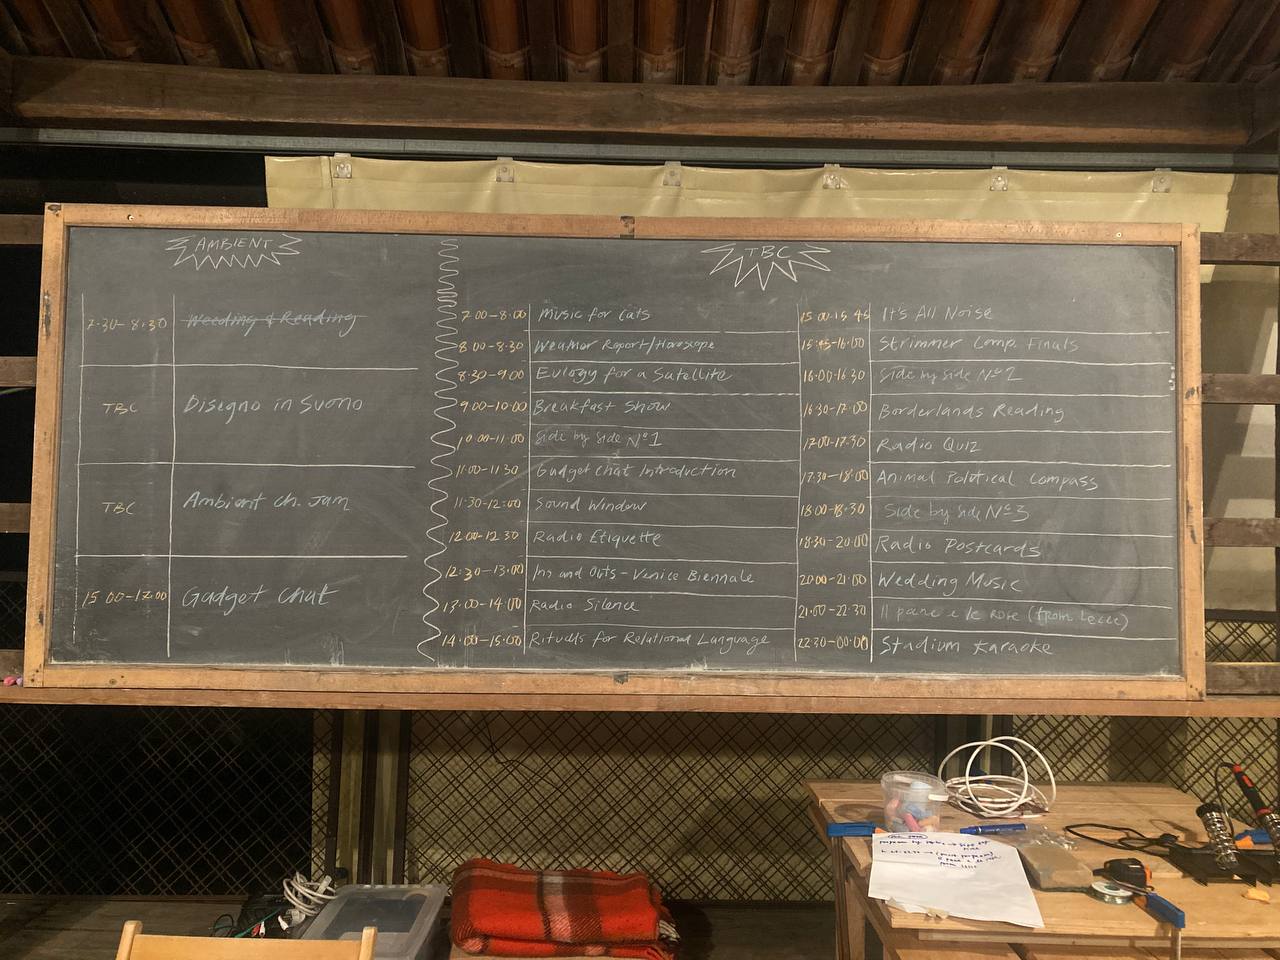 AMBIENT
7.30-8:30 Weeding & Reading
TBC Disegno in Suono
TBC Ambient ch. Jam
15 00-17:00 Gadget Chat
TBC
7 00-8:00 Music for Cats
8 00-8.30 Weather Report/Horoscope
8:30-9:00 Eulogy for a Satellite
9:00-10:00 Breakfast Show
10 00-11:00 Side by Side Nº1
11:00-11 30 Gadget Chat Introduction
11:30-12:00 Sound Window
12 00-12 30 Radio Etiquette
12:30-13:00 Ins and Outs - Venice Biennale
13:00-14:00 Radio Silence
14:00-15:00 Rituals for Relational Language
15 00-15 45 It's All Noise
15:45-16:00 Strimmer Comp. Finals
16:00-16 30 Side by Side Nº2
16:30-17:00 Borderlands Reading
17:00-17:30 Radio Quiz
17:30-18:00 Animal Political Compass
18:00-18:30 Side by Side Nº3
18:30-20:00 Radio Postcards
20:00-21:00 Wedding Music
21:00-22:30 Il pane e le rose (from Lecce)
22:30-00:00 Stadium Karaoke